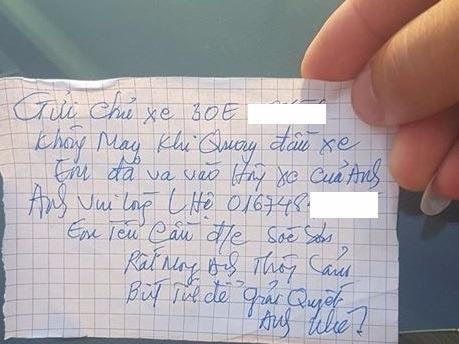 Gửi chủ xe 30E
Không May Khi Quay đầu xe
Em đã va vào xe của Anh
Anh vui lòng LHệ 016748
Em Tên Cần đ/c Sóc Sơn
Rất Mong Anh Thông Cảm
để giải Quyết
Anh Nhé?